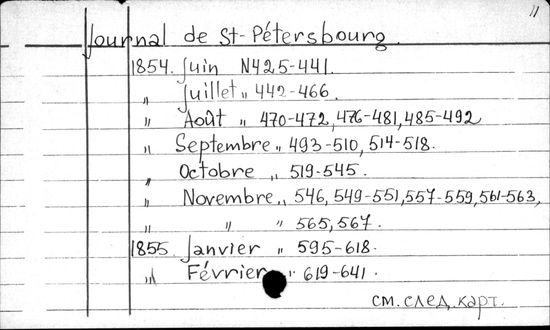 11
Journal de St-Pétersbourg.
1854. Juin N425-441.
„ Juillet „ 442-466.
„ Août „ 470-472, 476-481, 485-492
„ Septembre „ 493-510, 514-518.
„ Octobre „ 519-545.
„ Novembre „ 546, 549-551, 557-559, 561-563,
„ „ „ 565, 567.
1855 Janvier „ 595-618.
„ Février „ 619-641.
см. след. карт.